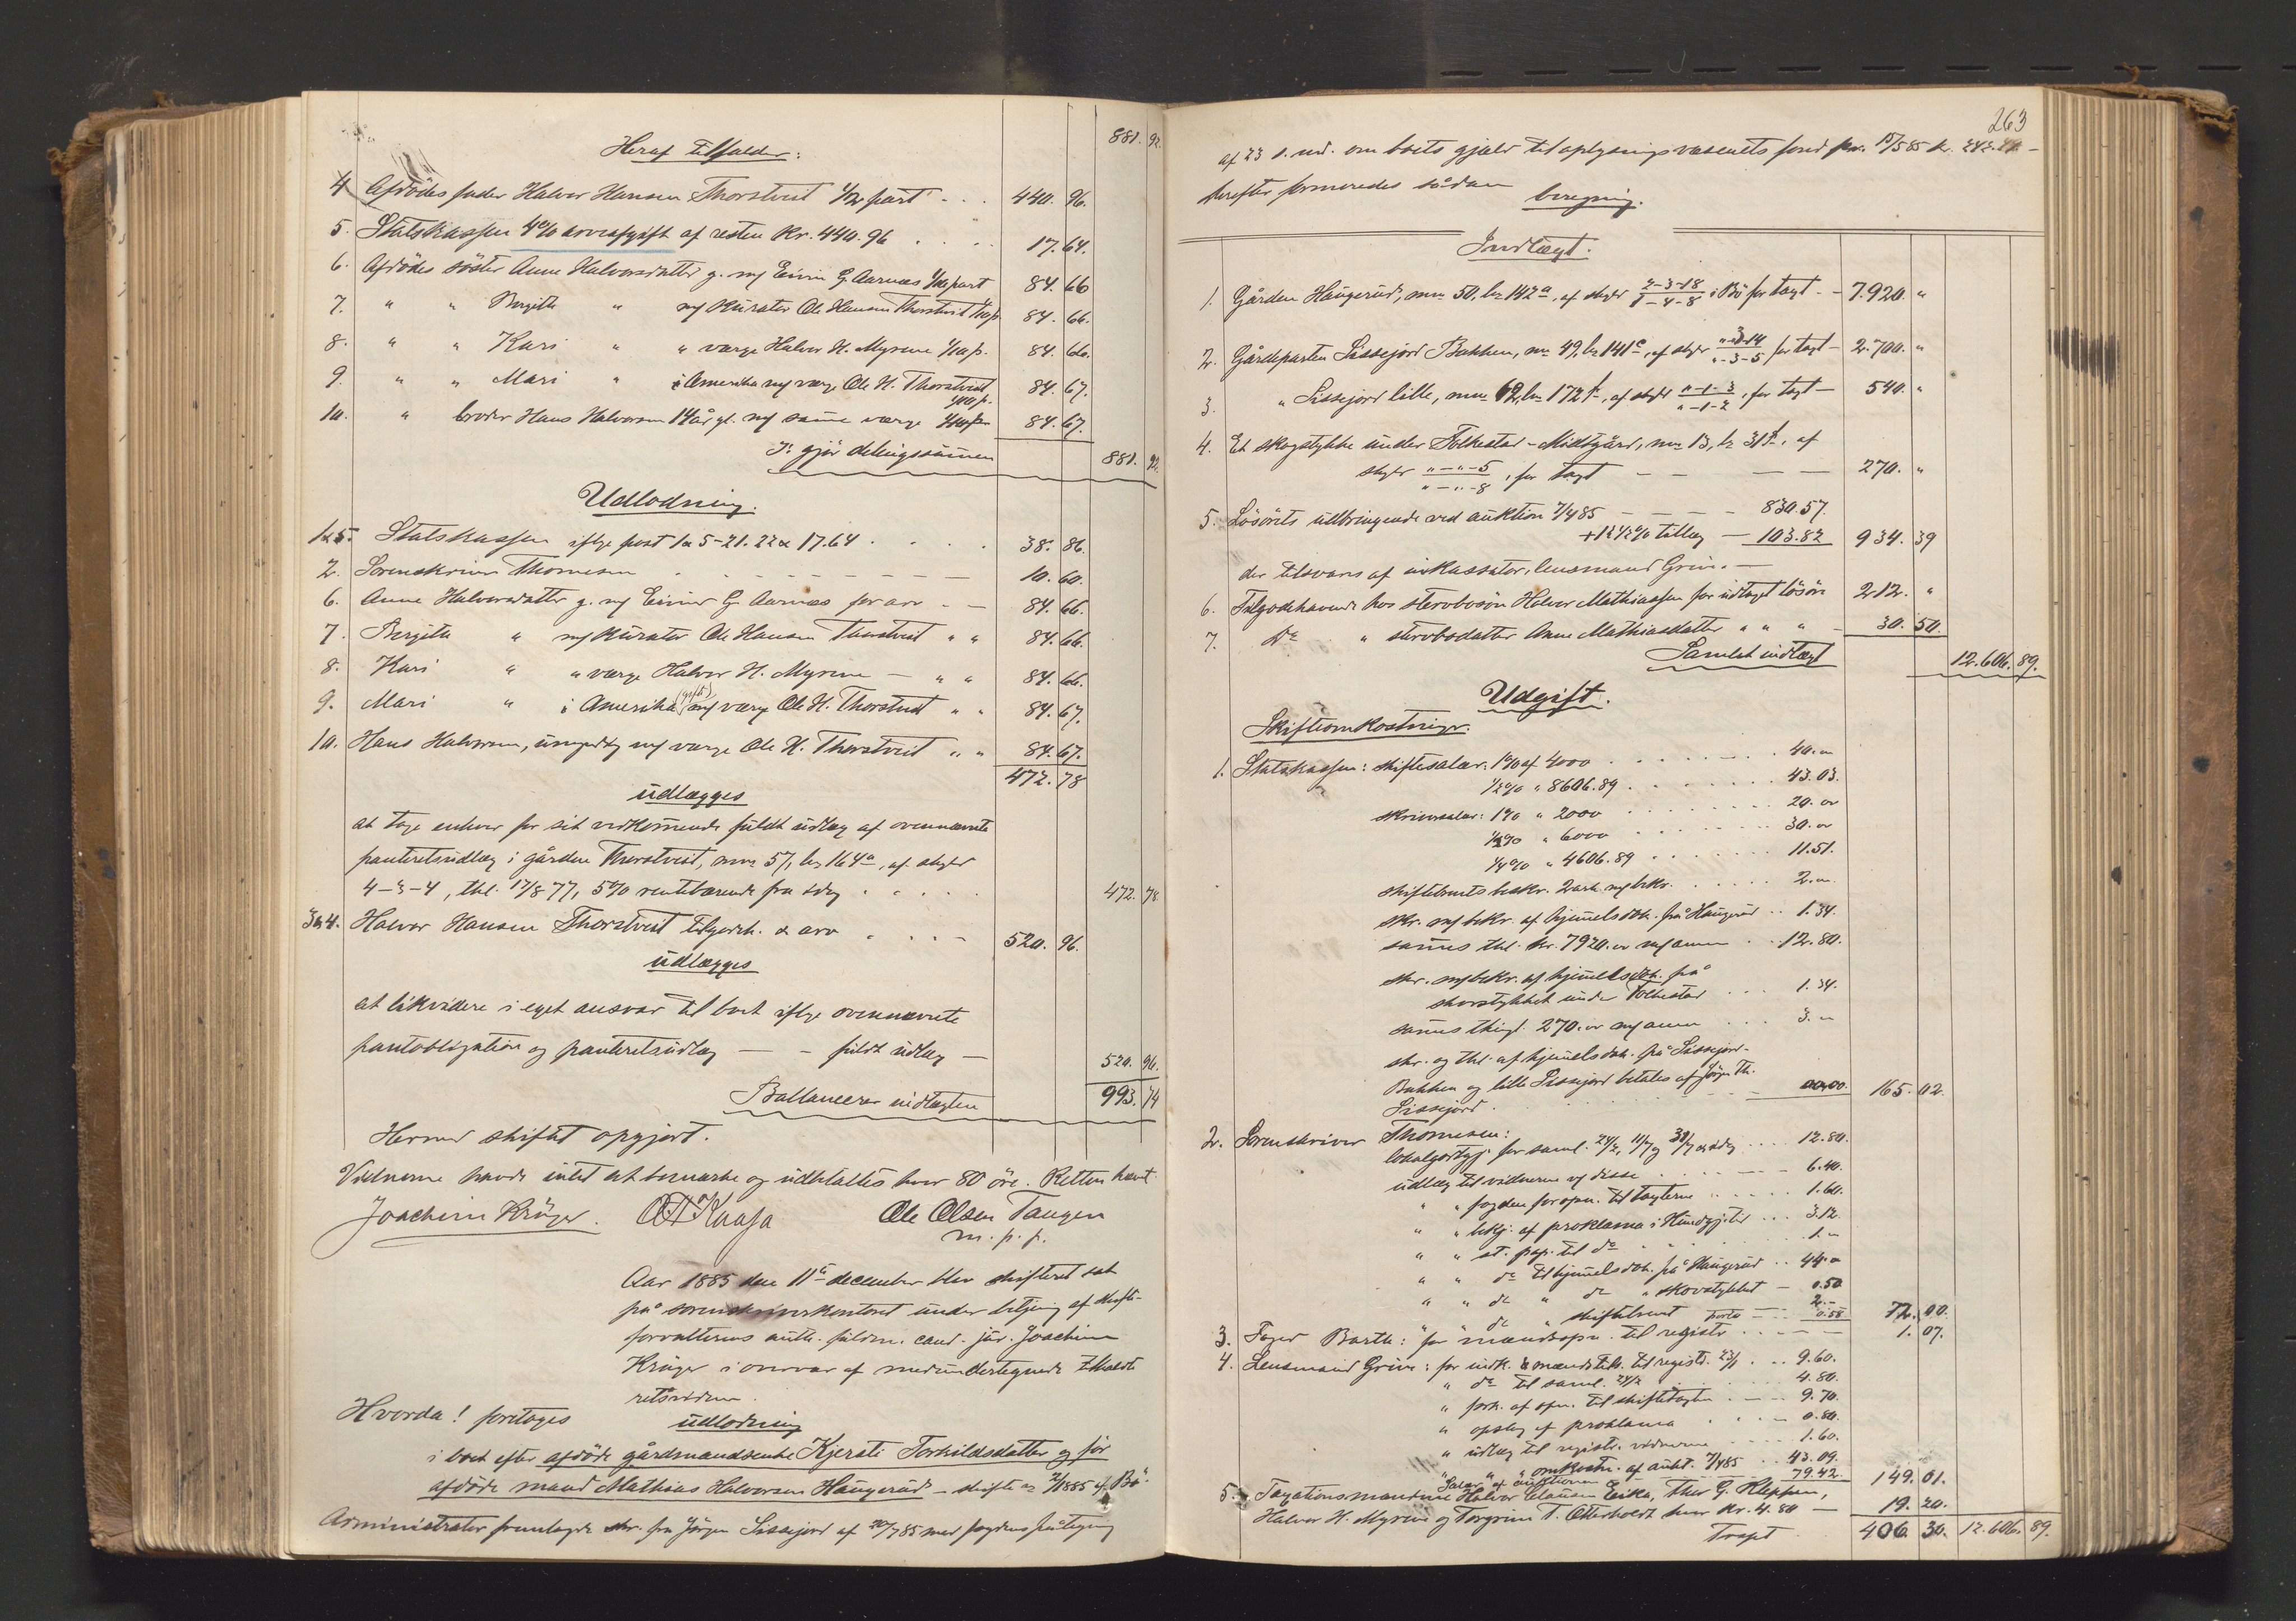 881. 92.
Heraf tilfalder:
4 Afdödes fader Halvor Hansen Thorstveit 1/2 part - . . 440. 96.
5. Statskassen 4% arveafgift af resten Kr. 440.96 . . . 17. 64.
6. Afdödes söster Anne Halvorsdatter g. m/ Einin G. Aarnæs 1/10 part 84. 66
7. " " Bergith " m/ kurator Ole Hansen Thorstveit 1/10 p. 84. 66.
8. " " Kari " " værge Halvor H. Myrene 1/10 p. 84. 66.
9. " " Mari " i Amerika m/ værge Ole H. Thorstveit 1/10 p. 84. 67.
10. " broder Hans Halvorsen 14 år gl. m/ samme værge 84. 67.
gjör delingssummen 881. 92.
Udlodning.
1 & 5. Statskassen ifölge post 1 & 5 - 21.22 & 17.64 . . . . 38. 86.
2. Sorenskriver Thomesen - - - - - - 10. 60.
6. Anne Halvorsdatter g. m/ Einin G. Aarnæs for arv - - 84. 66.
7. Bergith " m/ kurator Ole Hansen Thorstveit " " 84. 66.
8. Kari " " værge Halvor H. Myrene - " " 84. 66.
9. Mari " i Amerika (gift) m/ værge Ole H. Thorstveit " " 84. 67.
10. Hans Halvorsen, umyndig m/ værge Ole H. Thorstveit " " 84. 67.
472. 78
udlægges
at tage enhver for sit vedkommende fuldt udlæg af ovennævnte
panteretsudlæg i gården Thorstveit, mno 57, lno 164a, af skyld
4-3-4, thl. 17/8 77, 5% rentebærende fra idag . . . . 472. 78
3 & 4. Halvor Hansen Thorstveit tilgodeh. & arv . . . - 520. 96.
udlægges
at likvidere i eget ansvar til boet ifölge ovennævnte
pantobligation og panteretsudlæg — - fuldt udlæg — 520. 96.
Ballancerer indtægten 993. 74
Hermed skiftet opgjort.
Vidnerne havde intet at bemærke og udbetaltes hver 80 öre. Retten hævet.
Joachim Krüger. Ole Olsen Tangen
m. p. p.
Aar 1885 den 11te december blev skifteret sat
på sorenskriverkontoret under betjening af skifte-
forvalterens auth. fuldm. cand. jur. Joachim
Krüger i overvær af medundertegnede tilkaldte
retsvidner.
Hvorda! foretoges udlodning
i boet efter afdöde gårdmandsenke Kjersti Torkildsdatter og för
afdöde mand Mathias Halvorsen Haugerud - skifte 1885 i Bö.
Administrator fremlagde skr. fra Jörgen Sissejord af 20/7 85 med fogdens påtegning
263
af 23 s. md. om boets gjæld til oplysningsvæsenets fond pr. 15/5 85 kr. 242.
derefter formeredes sådan
beregning.
Indtægt.
1. Gården Haugerud, mno 50, lno 142a, af skyld 2-3-18 / 1-4-8 i Bö for taxt - 7.920. "
2. Gårdparten Sissejord Bakken, mno 49, lno 141c, af skyld "-3-14 / "-3-5 for taxt - 2.700. "
3. " Sissejord lille, mno 62, lno 172 , af skyld "-1-3 / "-1-2, for taxt - 540. "
4. Et skogstykke under Folkestad-Midtgård, mno 13, lno 31 , af
skyld "-"-5 / "-"-8, for taxt - - - - 270. "
5. Lösörets udbringende ved auktion 7/4 85 - - - - 830.57.
+ 12 1/2 % tillæg - 103.82 934. 39
der tilsvares af inkassator, lensmand Grini. -
6. Tilgodehavende hos stervbosön Halvor Mathiassen for udtaget lösöre 212. "
7. Do " stervbodatter Anne Mathiasdatter " " " - 30. 50.
Samlet indtægt 12.606. 89.
Udgift.
Skifteomkostninger.
1. Statskassen: skiftesalær: 1% af 4000 . . . . . . 40. "
1/2% " 8606.89 . . . . . . 43.03.
skriversalær: 1% " 2000 . . . . . . 20. "
1/2% " 6000 . . . . . . 30. "
1/4% " 4606.89 . . . . . 11.51.
skiftebrevets beskr. 2 ark m/ bekr. . . . . . 2. "
skr. m/ bekr. af hjemelsdok. på Haugerud . . 1.34.
sammes thl. kr. 7920. " m/ anm . . 12.80.
skr. m/ bekr. af hjemelsdok. på
skovstykket under Folkestad . . . 1.34.
sammes thingl. 270. " m/ anm . . . 3. "
skr. og thl. af hjemelsdok. på Sissejord-
Bakken og lille Sissejord betales af Jörgen Th.
Sissejord . . . . 00.00. 165. 02.
2. Sorenskriver Thomesen:
lokalgodtgj. for saml. 24/2, 11/7 og 30/7 & idag . . . 12.80.
udlæg til vidnerne v/ disse . . . - - 6.40.
" " fogden for opn. til taxterne . . . . 1.60.
" " bekj. af proklama i Kundgj.tid. . . . 3.12.
" " st. pap. til do . . . . . 1. "
" " do til hjemelsdok. på Haugerud . . 44. "
" " do " do " skovstykket - 0.50
" " do " skiftebrevet 2. "
porto - - 0.58 72. 00.
3. Foged Barth: for mændsopn. til registr. . . - - 1. 07.
4. Lensmand Grini: for indk. & mændstilk. til registr. 23/1 . . . 9.60.
" do til saml. 24/2 . . . . . 4.80.
" fork. af opn. til skiftetaxten . - - 9.70.
" opslag af proklama . . . - 0.80.
" udlæg til registr. vidnerne . . . . 1.60.
" " omkostn. af aukt. 7/4 85 . . 43.09.
" Salær af auktionen - - 79.42. 149. 01.
5. Taxationsmændene Halvor Clausen Eika, Thor G. Kleppen,
Halvor H. Myrene og Torgrim T. Otterholdt hver kr. 4.80 — 19. 20.
Transpt 406. 30. 12.606. 89.